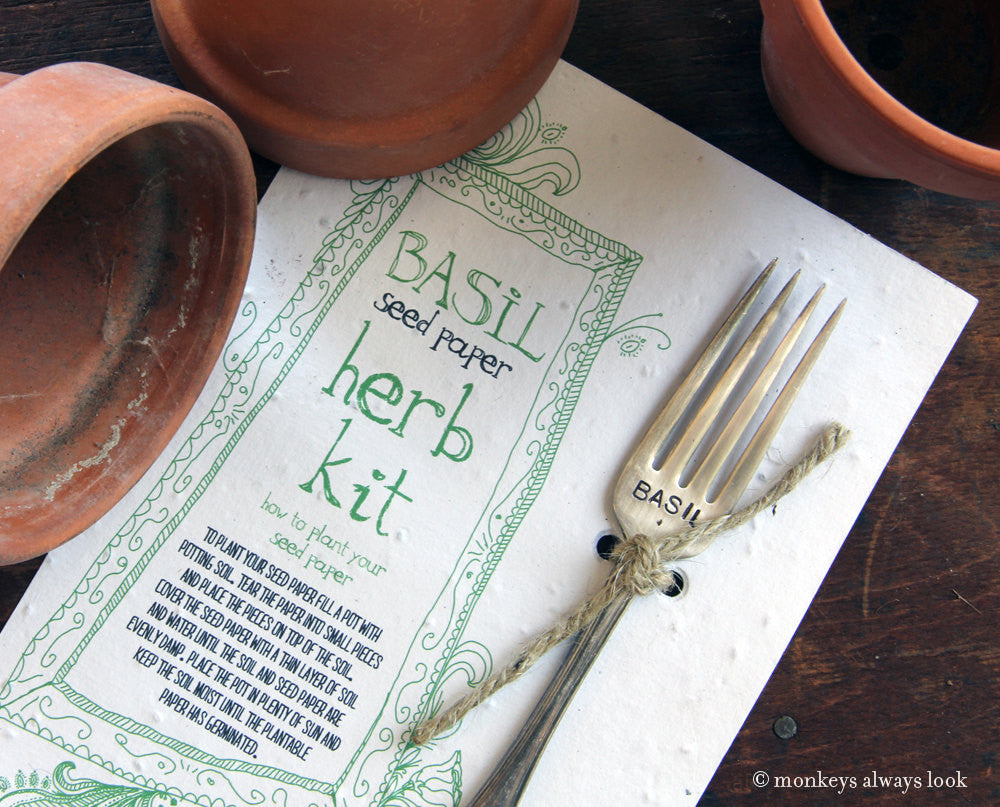 BASiL
seed paper
herb
kit
how to plant your
seed paper
TO PLANT YOUR SEED PAPER FILL A POT WITH
POTTING SOIL. TEAR THE PAPER INTO SMALL PIECES
AND PLACE THE PIECES ON TOP OF THE SOIL.
COVER THE SEED PAPER WITH A THIN LAYER OF SOIL
AND WATER UNTIL THE SOIL AND SEED PAPER ARE
EVENLY DAMP. PLACE THE POT IN PLENTY OF SUN AND
KEEP THE SOIL MOIST UNTIL THE PLANTABLE
PAPER HAS GERMINATED.
BASIL
© monkeys always look